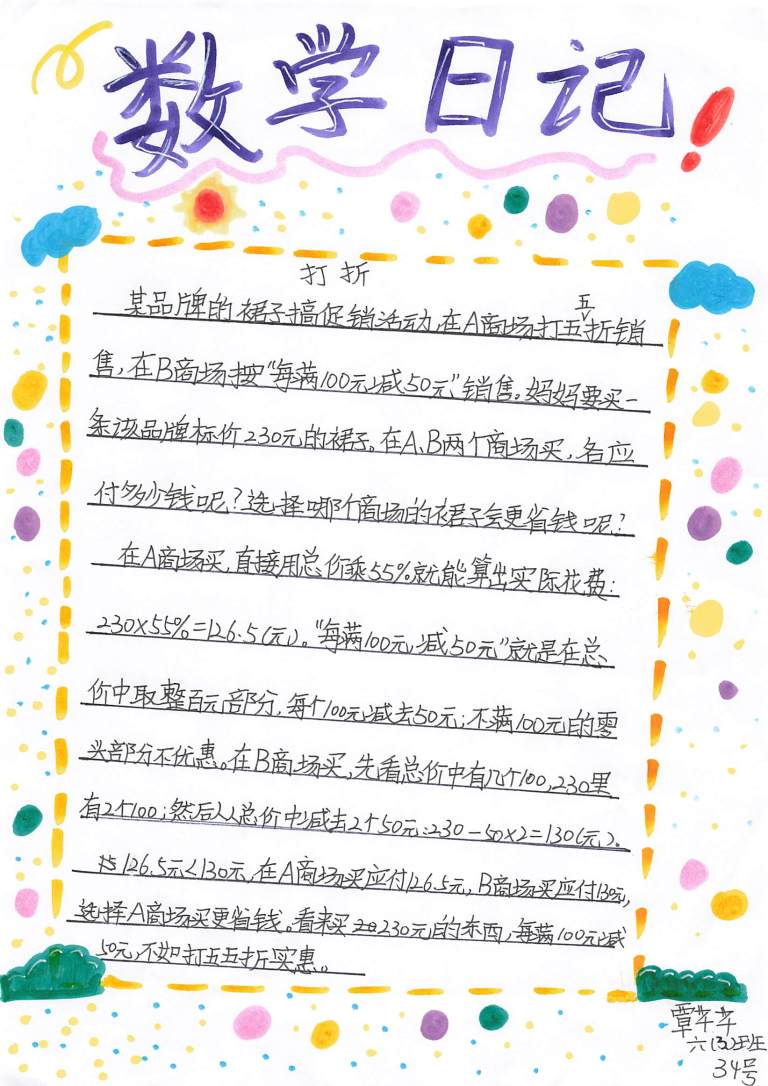 数学日记!
打折
某品牌的裙子搞促销活动,在A商场打五五折销
售,在B商场按"每满100元减50元"销售。妈妈要买一
条该品牌标价230元的裙子。在A、B两个商场买,各应
付多少钱呢?选择哪个商场的裙子会更省钱呢?
在A商场买,直接用总价乘55%就能算出实际花费:
230×55%=126.5(元)。"每满100元,减50元"就是在总
价中取整百元部分,每个100元减去50元;不满100元的零
头部分不优惠。在B商场买,先看总价中有几个100,230里
有2个100;然后从总价中减去2个50元:230-50×2=130(元)。
126.5元<130元,在A商场买应付126.5元,B商场买应付130元,
选择A商场买更省钱。看来买230元的东西,每满100元减
50元,不如打五五折实惠。
覃芊芊
六(3)班
34号